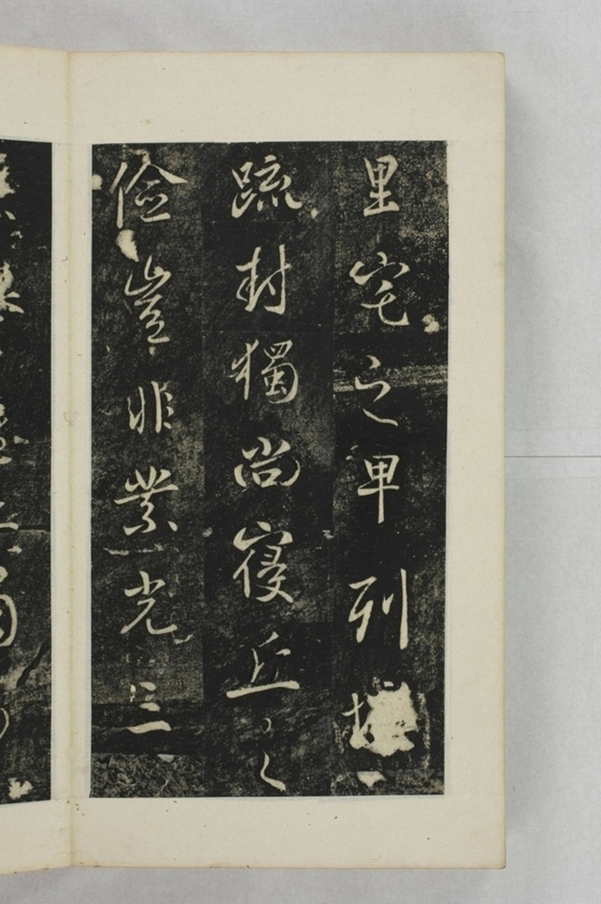 里宅之甲列
疏封獨尚寢丘之
儉豈非業光三